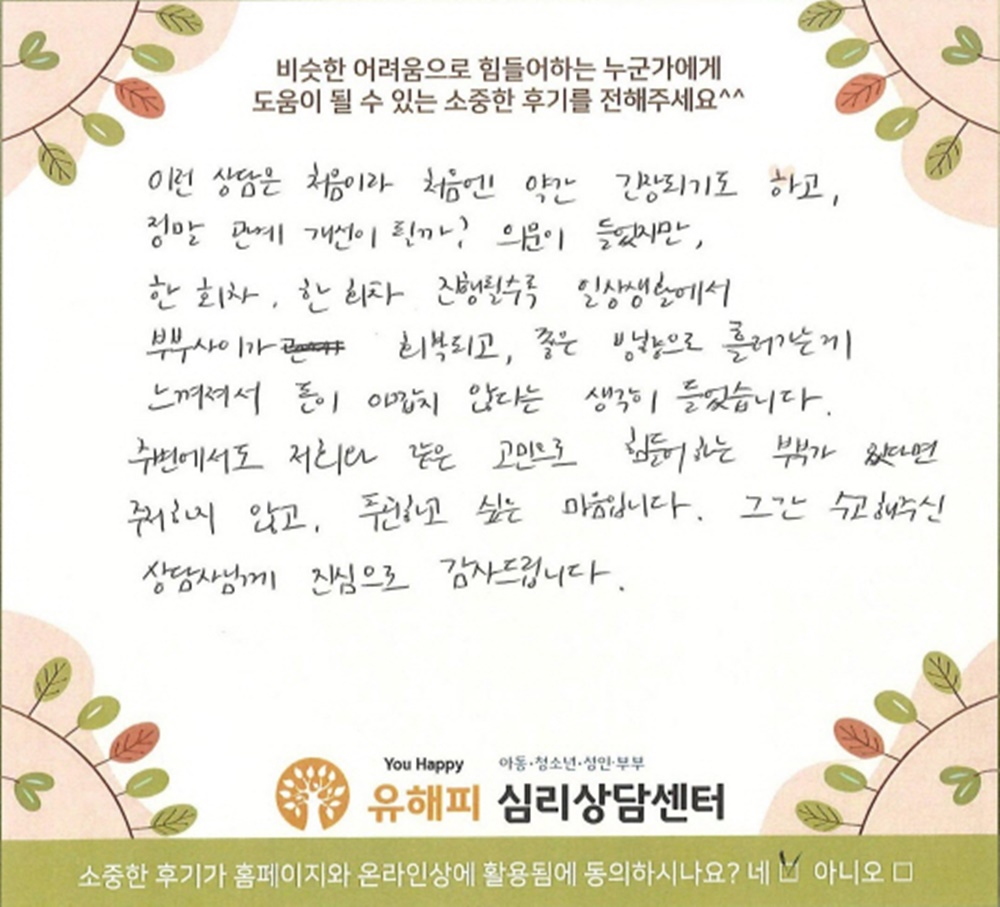 비슷한 어려움으로 힘들어하는 누군가에게
도움이 될 수 있는 소중한 후기를 전해주세요^^
이런 상담은 처음이라 처음엔 약간 긴장되기도 하고,
정말 관계 개선이 될까? 의문이 들었지만,
한 회차, 한 회차 진행될수록 일상생활에서
부부사이가 회복되고, 좋은 방향으로 흘러가는게
느껴져서 돈이 아깝지 않다는 생각이 들었습니다.
주변에서도 저희와 같은 고민으로 힘들어하는 부부가 있다면
주저하지 않고, 추천하고 싶은 마음입니다. 그간 수고해주신
상담사님께 진심으로 감사드립니다.
You Happy 아동·청소년·성인·부부
유해피 심리상담센터
소중한 후기가 홈페이지와 온라인상에 활용됨에 동의하시나요? 네 ☑ 아니오 □